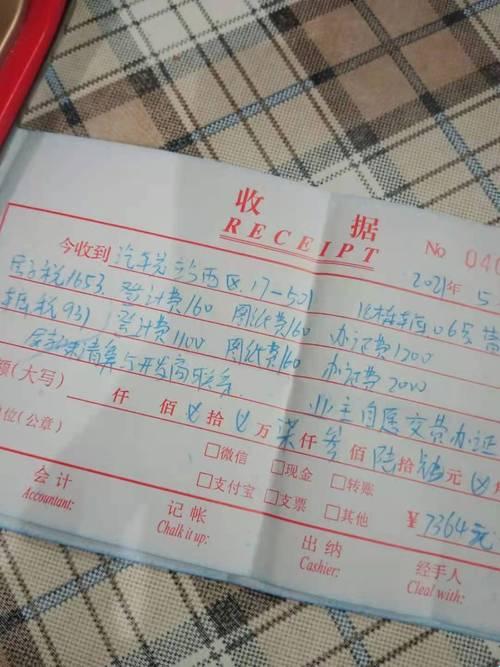 收 据
RECEIPT
No 040
今收到 汽车 西区.17-501
2021年 5
房子税1653 登计费160 图纸费160 办证费1200
06号
车库税931 登计费1100 图纸费160 办证费2000
与开发商联系
业主自愿交费办证
额(大写) 仟 佰 拾 万 柒仟 叁佰 陆拾 元
位(公章)
□微信 □现金 □转账
□支付宝 □支票 □其他
¥7364元
会 计
Accountant:
记 帐
Chalk it up:
出 纳
Cashier:
经手人
Cleal with: